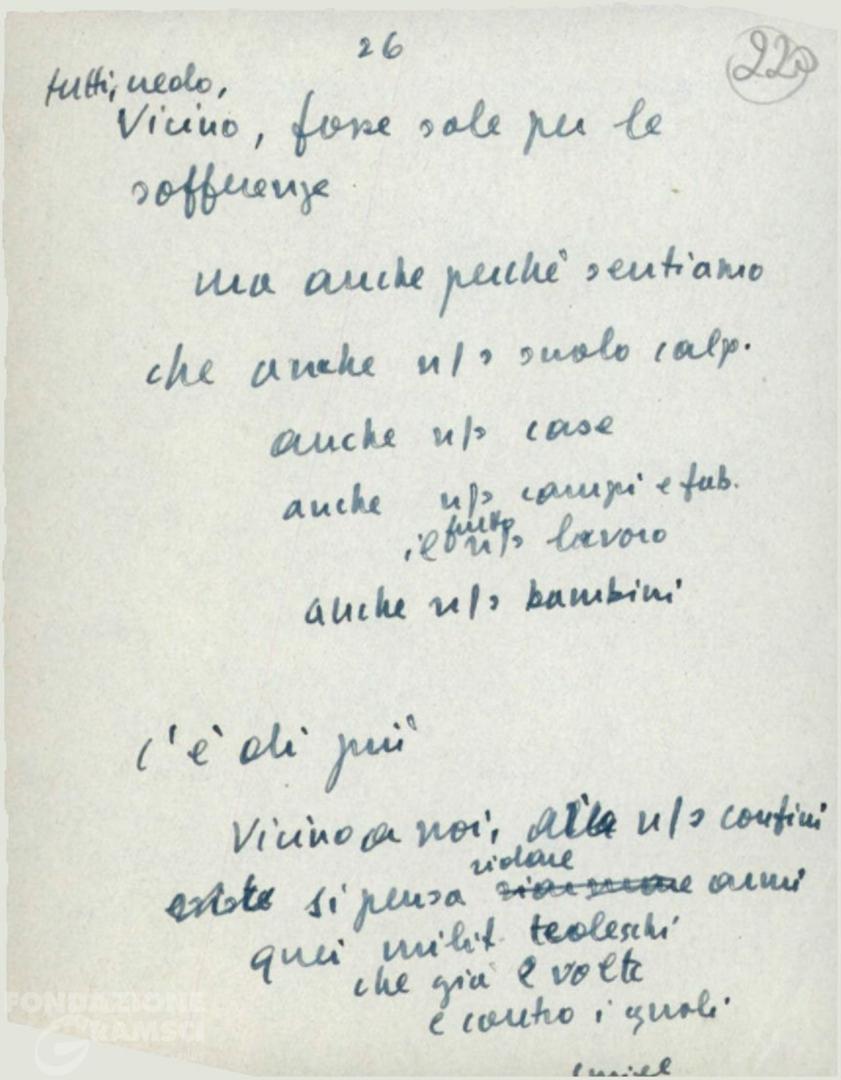 26
220
tutti, vedo,
Vicino, forse solo per le
sofferenze
ma anche perché sentiamo
che anche n/s suolo calp.
anche n/s case
anche n/s campi e fab.
frutto
, e n/s lavoro
anche n/s bambini
c'è di più
Vicino a noi, alla n/s confini
ridare
si pensa armi
quei milit. tedeschi
che già 2 volte
e contro i quali
FONDAZIONE
GRAMSCI